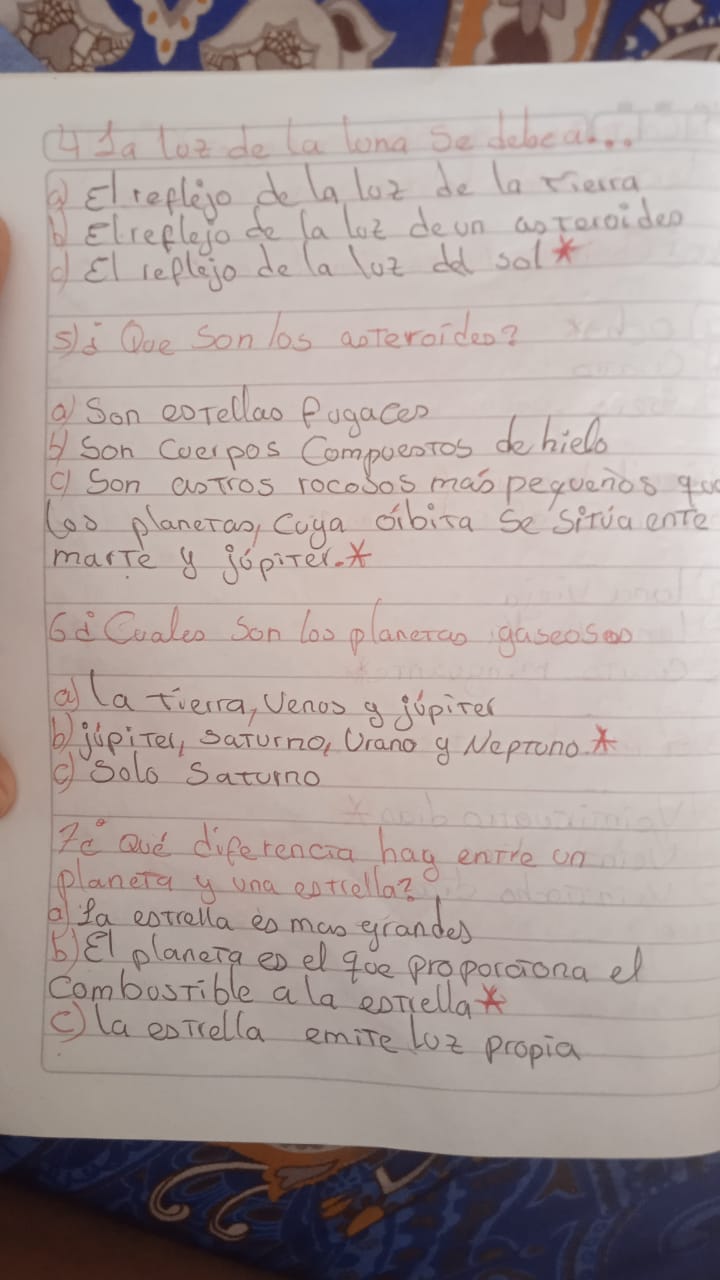 4 La luz de la luna se debe a...
a) El reflejo de la luz de la tierra
b) El reflejo de la luz de un asteroides
c) El reflejo de la luz del sol *
5) ¿Que son los asteroides?
a) Son estrellas fugaces
b) Son cuerpos compuestos de hielo
c) Son astros rocosos mas pequeños que
los planetas, cuya órbita se sitúa ente
marte y júpiter. *
6 ¿Cuales son los planetas gaseosos
a) la tierra, Venos y júpiter
b) júpiter, saturno, Urano y Neptuno *
c) Solo Saturno
7 ¿Qué diferencia hay entre un
planeta y una estrella?
a) La estrella es mas grandes
b) El planeta es el que proporciona el
combustible a la estrella *
c) la estrella emite luz propia